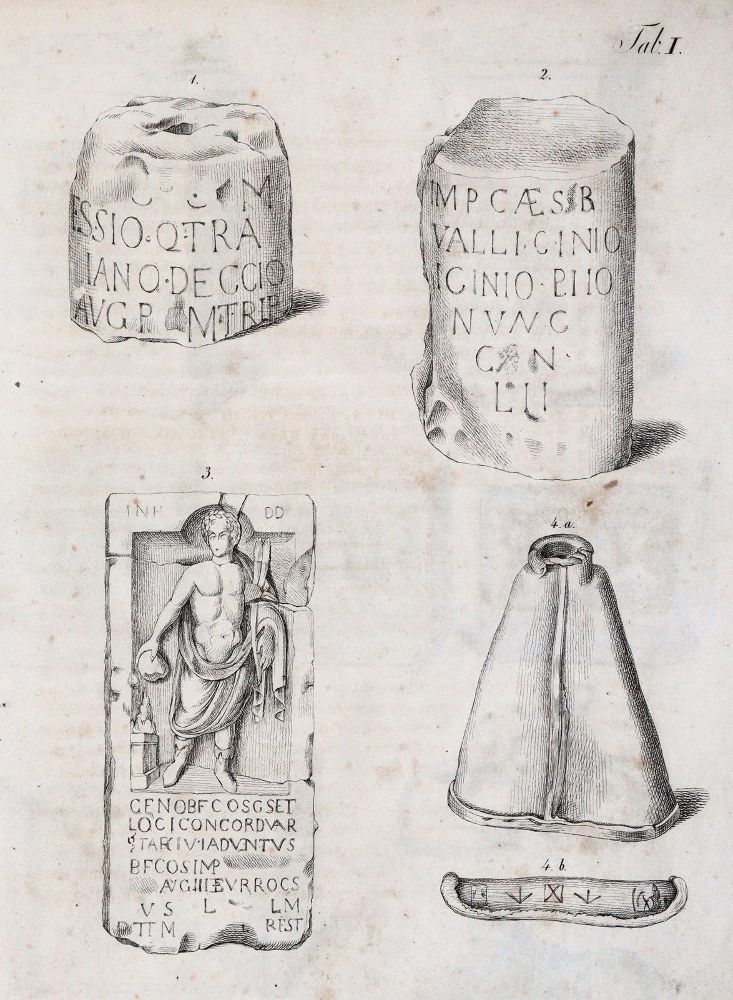 Tab. I.
1.
M
SSIO·Q·TRA
IANO·DECCIO
AVG P M·TRIP
2.
IMP CÆS B
VALLI·C·INIO
ICINIO·PIIO
NVNC
C N·
LLI
3.
INH DD
GENOBFCOSGSET
LOCICONCORDVAR
TARCIVIADVNTVS
BFCOSIMP
AVGIIIEVRROCS
VS L LM
PTTM REST
4.a.
4.b.